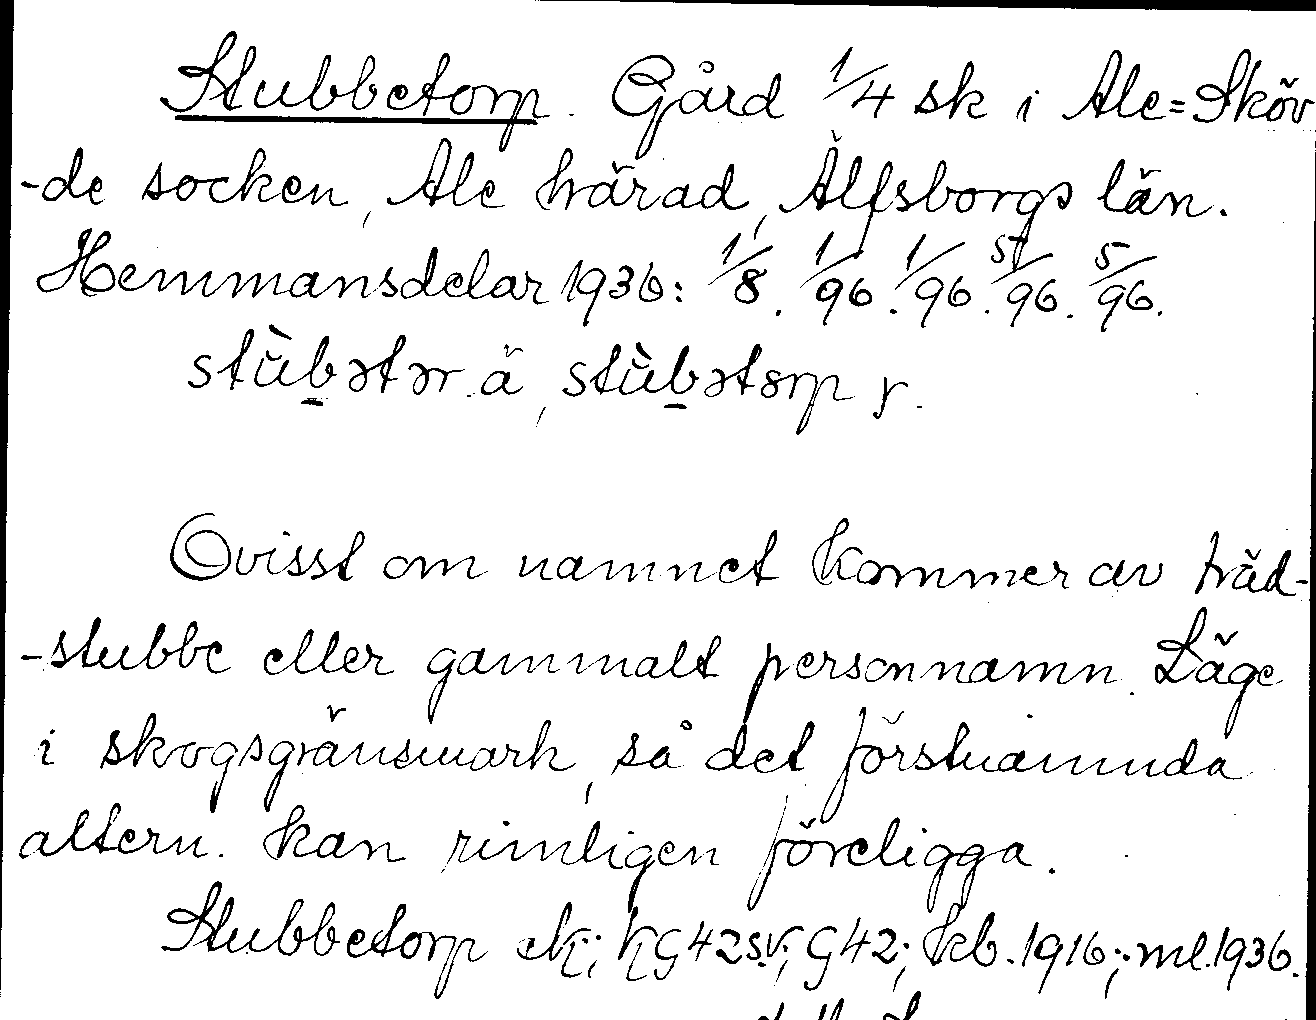 Stubbetorp. Gård 1/4 sk i Ale=Sköv
-de socken, Ale härad, Älfsborgs län.
Hemmansdelar 1936: 1/8. 1/96. 1/96. 5/96. 5/96.
stùbətər ä, stùbətorp r.
Ovisst om namnet kommer av träd-
-stubbe eller gammalt personnamn. Läge
i skogsgränsmark, så det förstnämnda
altern. kan rimligen föreligga.
Stubbetorp ek; KG42sv; G42; kb. 1916; ml. 1936.